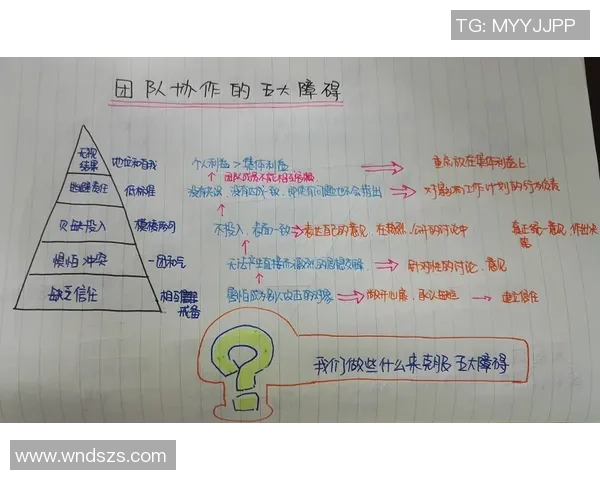 TG: MYYJJPP
团队协作的五大障碍
无视结果 地位和自我 个人利益 > 集体利益 重点放在集体利益上
团队成员不能相互
逃避责任 低标准 没有 没有达成一致，即使有问题也不会指出 对 工作计划的行为负责
欠缺投入 模棱两可 不投入，表面一致 表达自己的意见，在 公开的讨论中 真正统一意见，作出决策
惧怕冲突 一团和气 无法产生直接而激烈的思想交锋 针对性的讨论，意见
缺乏信任 相互 戒备 害怕成为别人攻击的对象 敞开心扉，承认 建立信任
我们做些什么来克服五大障碍
www.wndszs.com